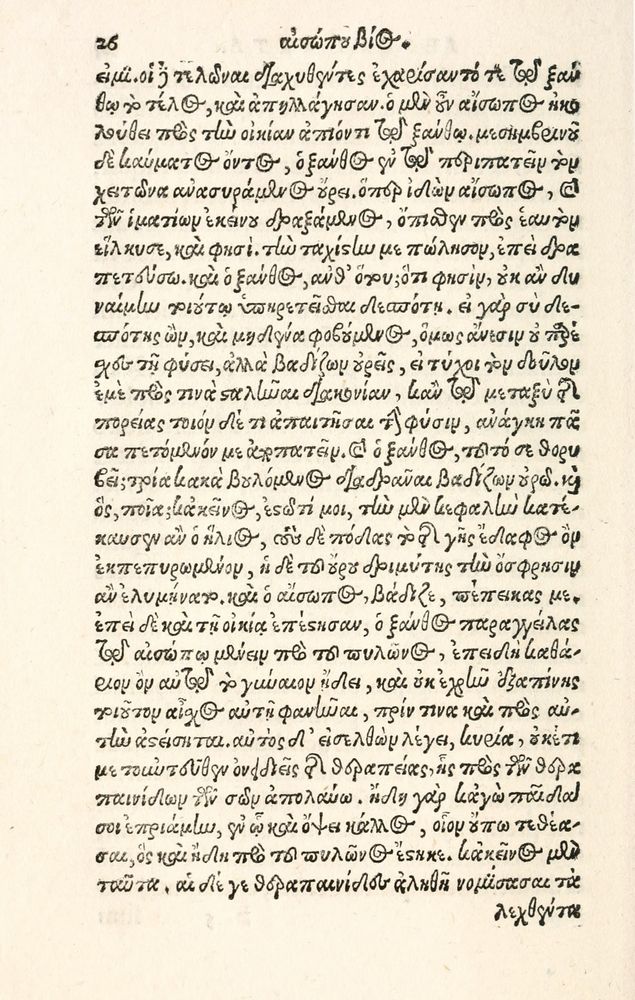 26 αἰσώπου βίος.
εἰμί. οἱ δὲ τελῶναι διαχυθέντες ἐχαρίσαντό τε τῷ ξάν
θῳ τὸ τέλος, καὶ ἀπηλλάγησαν. ὁ μὲν οὖν αἴσωπος ἠκο
λούθει πρὸς τὴν οἰκίαν ἀπιόντι τῷ ξάνθῳ. μεσημβρινοῦ
δὲ καύματος ὄντος, ὁ ξάνθος ἐν τῷ περιπατεῖν τὸν
χειτῶνα ἀνασυράμενος οὔρει. ὅπερ ἰδὼν αἴσωπος, καὶ
τῶν ἱματίων ἐκείνου δραξάμενος, ὄπισθεν πρὸς ἑαυτὸν
εἵλκυσε, καὶ φησί. τὴν ταχίστην με πώλησον, ἐπεὶ δρα
πετεύσω. καὶ ὁ ξάνθος, ἀνθ' ὅτου; ὅτι φησὶν, οὐκ ἂν δυ
ναίμην τοιούτῳ ὑπηρετεῖσθαι δεσπότῃ. εἰ γὰρ σὺ δε-
σπότης ὢν, καὶ μηδένα φοβούμενος, ὅμως ἄνεσιν οὐ παρέ
χου τῇ φύσει, ἀλλὰ βαδίζων οὐρεῖς, εἰ τύχοι τὸν δοῦλον
ἐμὲ πρός τινα σταλῆναι διακονίαν, κἂν τῷ μεταξὺ τῆς
πορείας τοιόνδε τι ἀπαιτῆσαι τὴν φύσιν, ἀνάγκη πᾶ
σα πετόμενόν με ἀποπατεῖν. καὶ ὁ ξάνθος, τοῦτό σε θορυ
βεῖ; τρία κακὰ βουλόμενος διαδρᾶναι βαδίζων οὐρῶ. καὶ
ὃς, ποῖα; κἀκεῖνος, ἑστῶτί μοι, τὴν μὲν κεφαλὴν κατέ-
καυσεν ἂν ὁ ἥλιος, τοὺς δὲ πόδας τὸ τῆς γῆς ἔδαφος ὂν
ἐκπεπυρωμένον, ἡ δὲ τοῦ οὔρου δριμύτης τὴν ὄσφρησιν
ἂν ἐλυμήνατο. καὶ ὁ αἴσωπος, βάδιζε, πέπεικάς με.
ἐπεὶ δὲ καὶ τῇ οἰκίᾳ ἐπέστησαν, ὁ ξάνθος παραγγείλας
τῷ αἰσώπῳ μένειν πρὸ τοῦ πυλῶνος, ἐπειδὴ καθά-
ριον ὂν αὐτῷ τὸ γύναιον ᾔδει, καὶ οὐκ ἐχρῆν ἐξαπίνης
τοιοῦτον αἶσχος αὐτῇ φανῆναι, πρίν τινα καὶ πρὸς αὐ-
τὴν ἀστείσηται. αὐτὸς δ' εἰσελθὼν λέγει, κυρία, οὐκέτι
με τοὐντεῦθεν ὀνειδιεῖς τῆς θεραπείας, ἧς πρὸς τῶν θερα
παινίδων τῶν σῶν ἀπολαύω. ἤδη γὰρ κἀγὼ παῖδά
σοι ἐπριάμην, ἐν ᾧ καὶ ὄψει κάλλος, οἷον οὔπω τεθέα-
σαι, ὃς καὶ ἤδη πρὸ τοῦ πυλῶνος ἔστηκε. κἀκεῖνος μὲν
ταῦτα. αἱ δέ γε θεραπαινίδες ἀληθῆ νομίσασαι τὰ
λεχθέντα